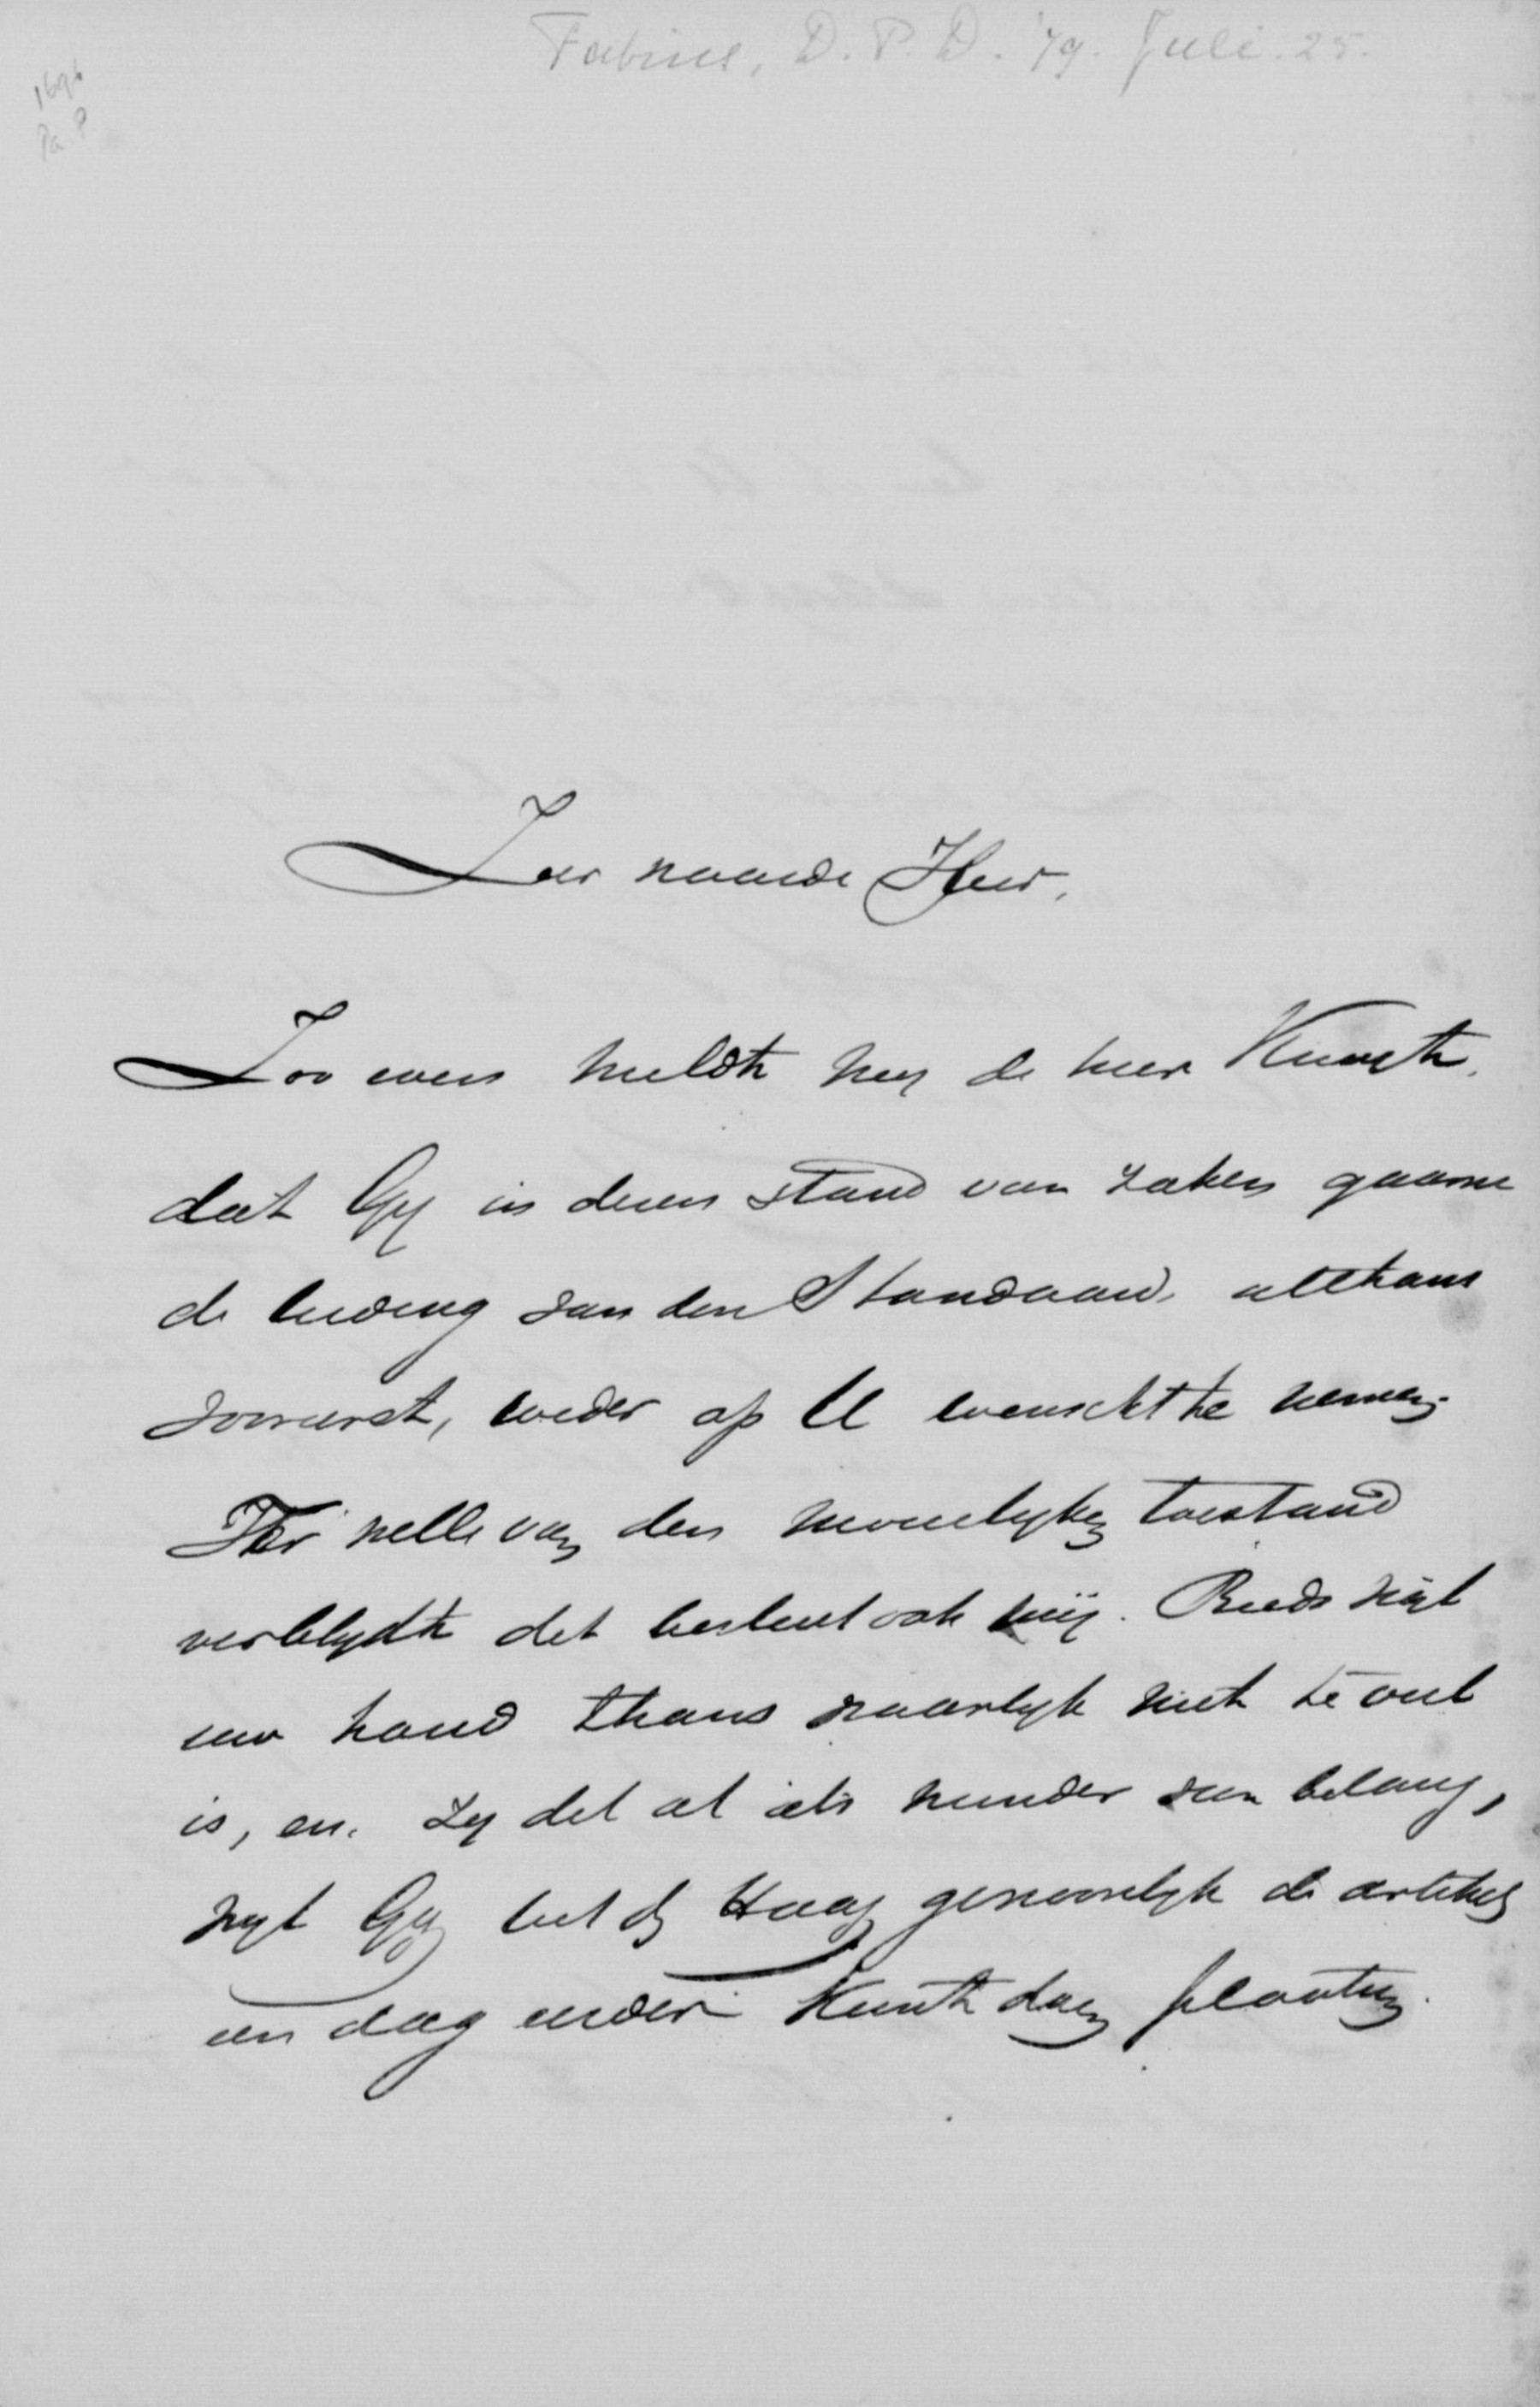 Fabius, D.P.D. '79. Juli. 25.
1696
Pa. P
Zeer waarde Heer,
Zoo even meldt my de heer Kuyper
dat Gy in dezen stand van zaken gaarne
de leiding van den Standaard, althans
vooreerst, weder op U wenscht te nemen.
Ter wille van den moeielyken toestand
verblydt dit besluit ook my. Reeds wyl
uw hand thans waarlyk niet te veel
is, en, zy dit al iets minder van belang,
wyl Gy uit den Haag gewoonlyk de artikels
een dag eerder kunt doen plaatsen.